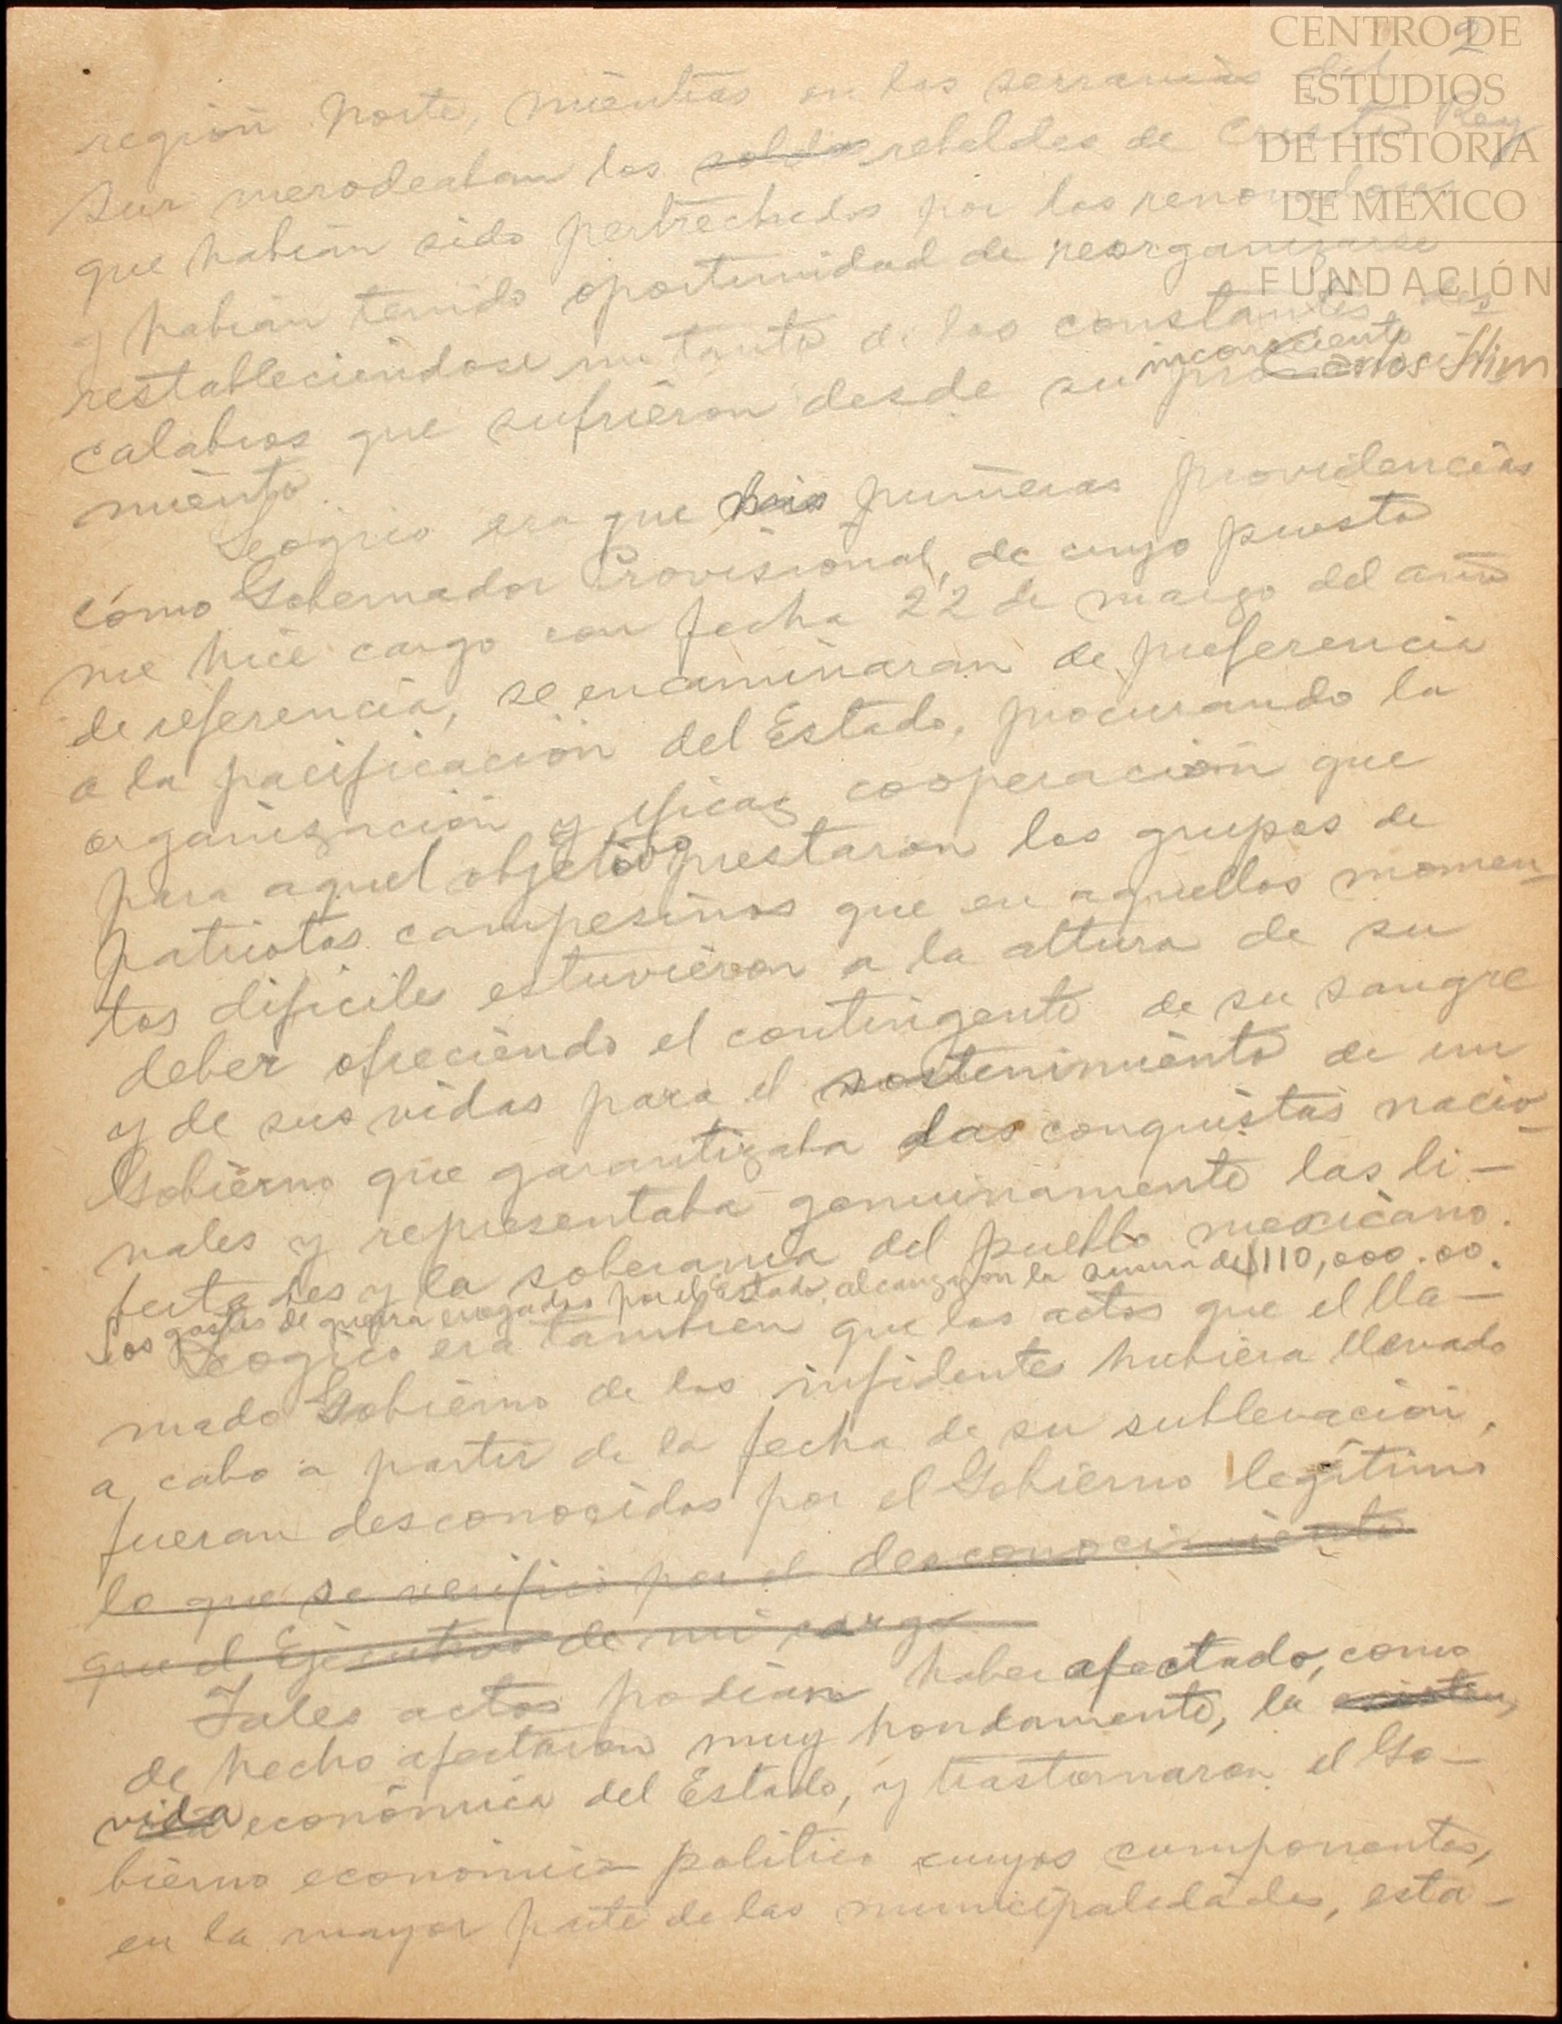 CENTRO DE
ESTUDIOS
DE HISTORIA
DE MEXICO
FUNDACIÓN
Carlos Slim
2
región Norte, mientras en las serranías del
Sur merodeaban los soldos rebeldes de Cristo Rey
que habían sido pertrechados por los renovadores
y habían tenido oportunidad de reorganizarse
restableciéndose un tanto de los constantes des-
calabros que sufrieron desde su inconsciente
miento.
Lógico era que mis primeras providencias
cómo Gobernador Provisional, de cuyo puesto
me hice cargo con fecha 22 de marzo del año
de referencia, se encaminaran de preferencia
a la pacificación del Estado, procurando la
organización y eficaz cooperación que
para aquel objetivo prestaron los grupos de
patriotas campesinos que en aquellos momen-
tos dificiles estuvieron a la altura de su
deber ofreciendo el contingente de su sangre
y de sus vidas para el sostenimiento de un
Gobierno que garantizaba las conquistas nacio-
nales y representaba genuinamente las li-
bertades y la soberanía del pueblo mexicano.
Los gastos de guerra erogados por el Estado, alcanzaron la suma de $110,000.00.
Lógico era tambien que los actos que el lla-
mado Gobierno de los infidentes hubiera llevado
a cabo a partir de la fecha de su sublevación,
fueran desconocidos por el Gobierno legítimo
lo que se verificó por el desconocimiento
que el Ejecutivo de mi cargo
Tales actos podían haber afectado, como
de hecho afectaron muy hondamente, la existen,
vida económica del Estado, y trastornaron el Go-
bierno economico politico cuyos componentes,
en la mayor parte de las municipalidades, esta-